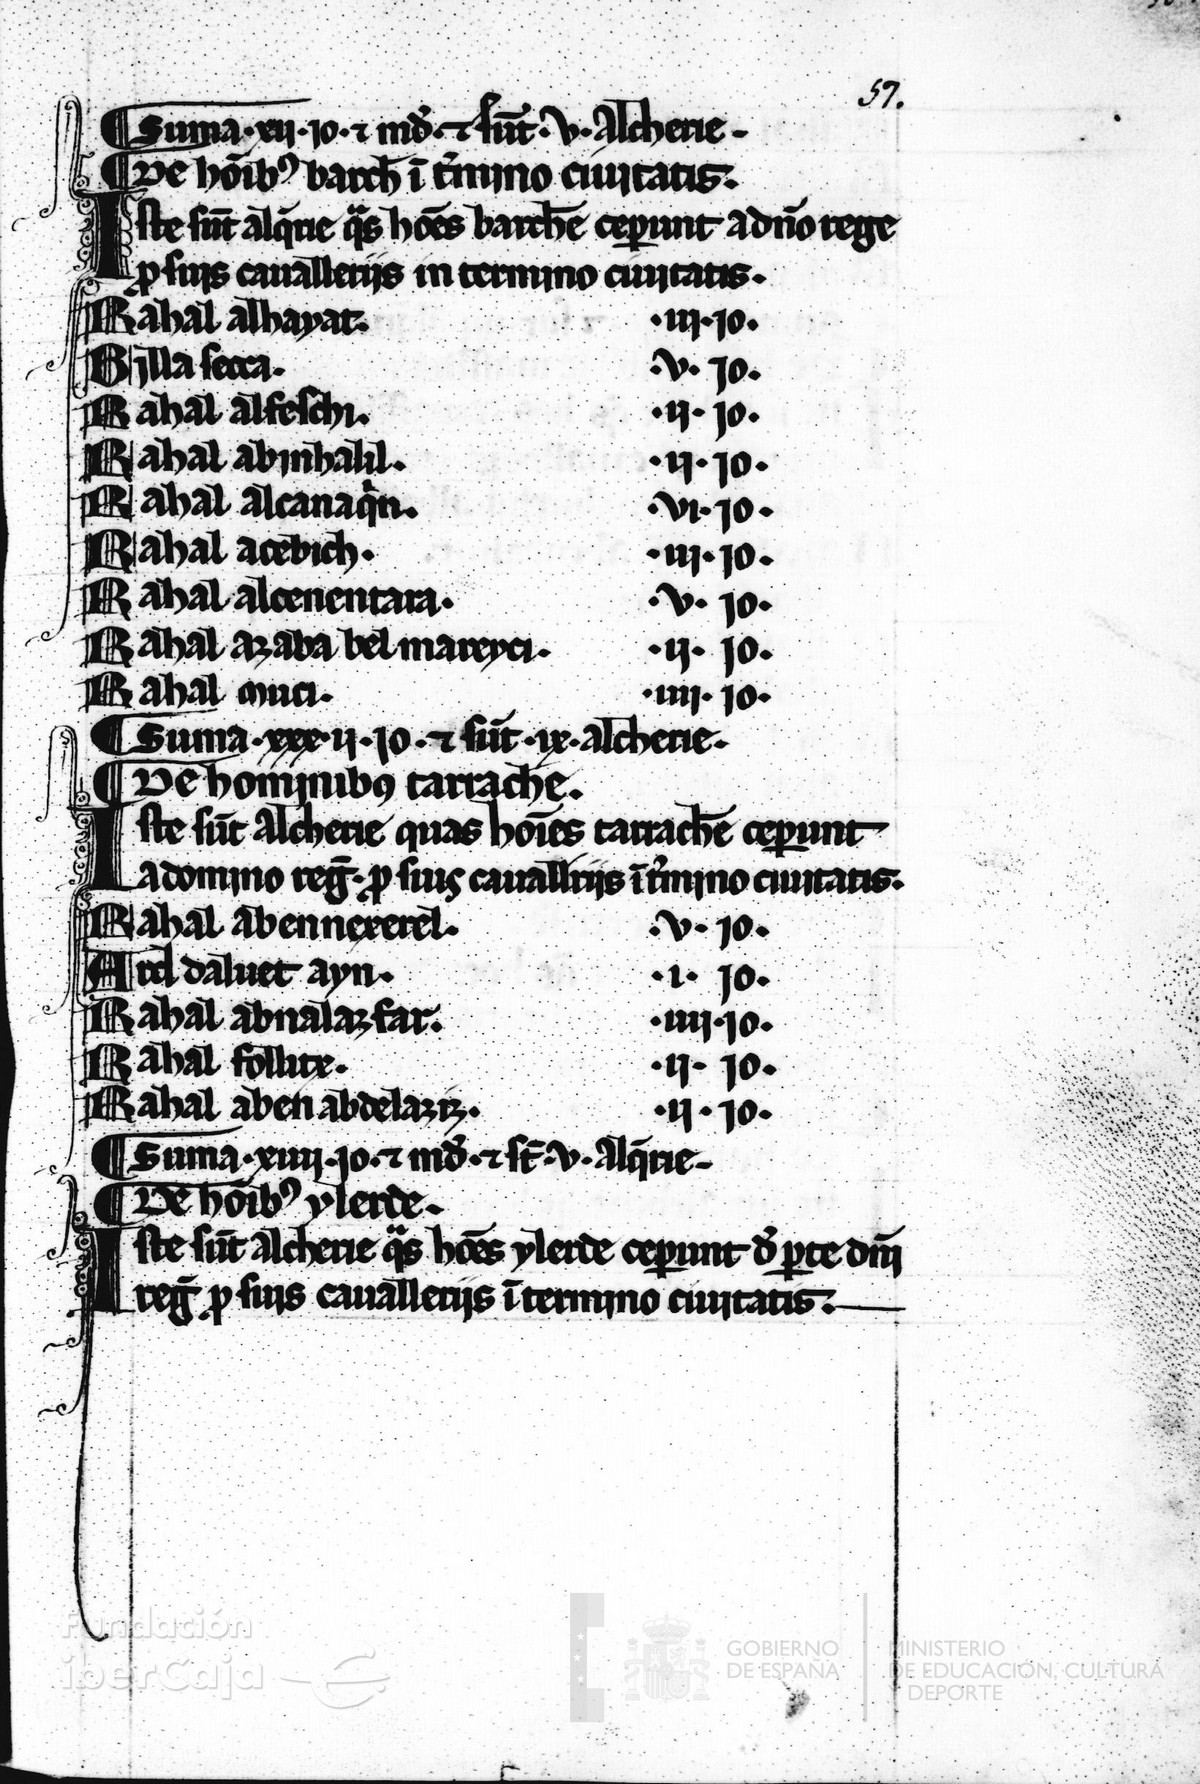 57.
¶ Suma · xii · jo · ⁊ md̓ · ⁊ sūt · v · Alcherie -
¶ De hōib⁹ barch̄ ī t̓mino ciuitatis.
Iste sūt alq̄rie qͣs hōēs barch̄e ceꝑunt a dn̄o rege
ꝓ suis cauallerijs in termino ciuitatis.
Rahal alhayat. · iii · jo ·
Billa secca. · v · jo ·
Rahal alfeschi. · ii · jo ·
Rahal abinhalil. · ii · jo ·
Rahal alcanaqͥn. · vi · jo ·
Rahal acebich. · iii · jo ·
Rahal alcenentara. · v · jo ·
Rahal azaba bel mareyci. · ii · jo ·
Rahal muci. · iiii · jo ·
¶ Suma · xxx · ii · jo · ⁊ sūt · ix · alcherie.
¶ De hominibꝰ tarrache.
Iste sūt Alcherie quas hoīes tarrach̄e ceꝑunt
a domino reḡ · ꝓ suis cauall̓ijs ī t̓mino ciuitatis.
Rahal abennexerel. · v · jo ·
Ard daluet ayn. · i · jo ·
Rahal abnalazfar. · iiii · jo ·
Rahal follite. · ii · jo ·
Rahal aben abdelaziz. · ii · jo ·
¶ Suma · xiiii · jo · ⁊ md̓ · ⁊ st̄ · v · Alq̄rie -
¶ De hōib⁹ ylerde.
Iste sūt alcherie qͣs hōēs ylerde ceꝑunt d̓ ꝑte dn̄i
reḡ ꝓ suis cauallerijs ī termino ciuitatis.
fundación
iberCaja
GOBIERNO
DE ESPAÑA
MINISTERIO
DE EDUCACIÓN, CULTURA
Y DEPORTE